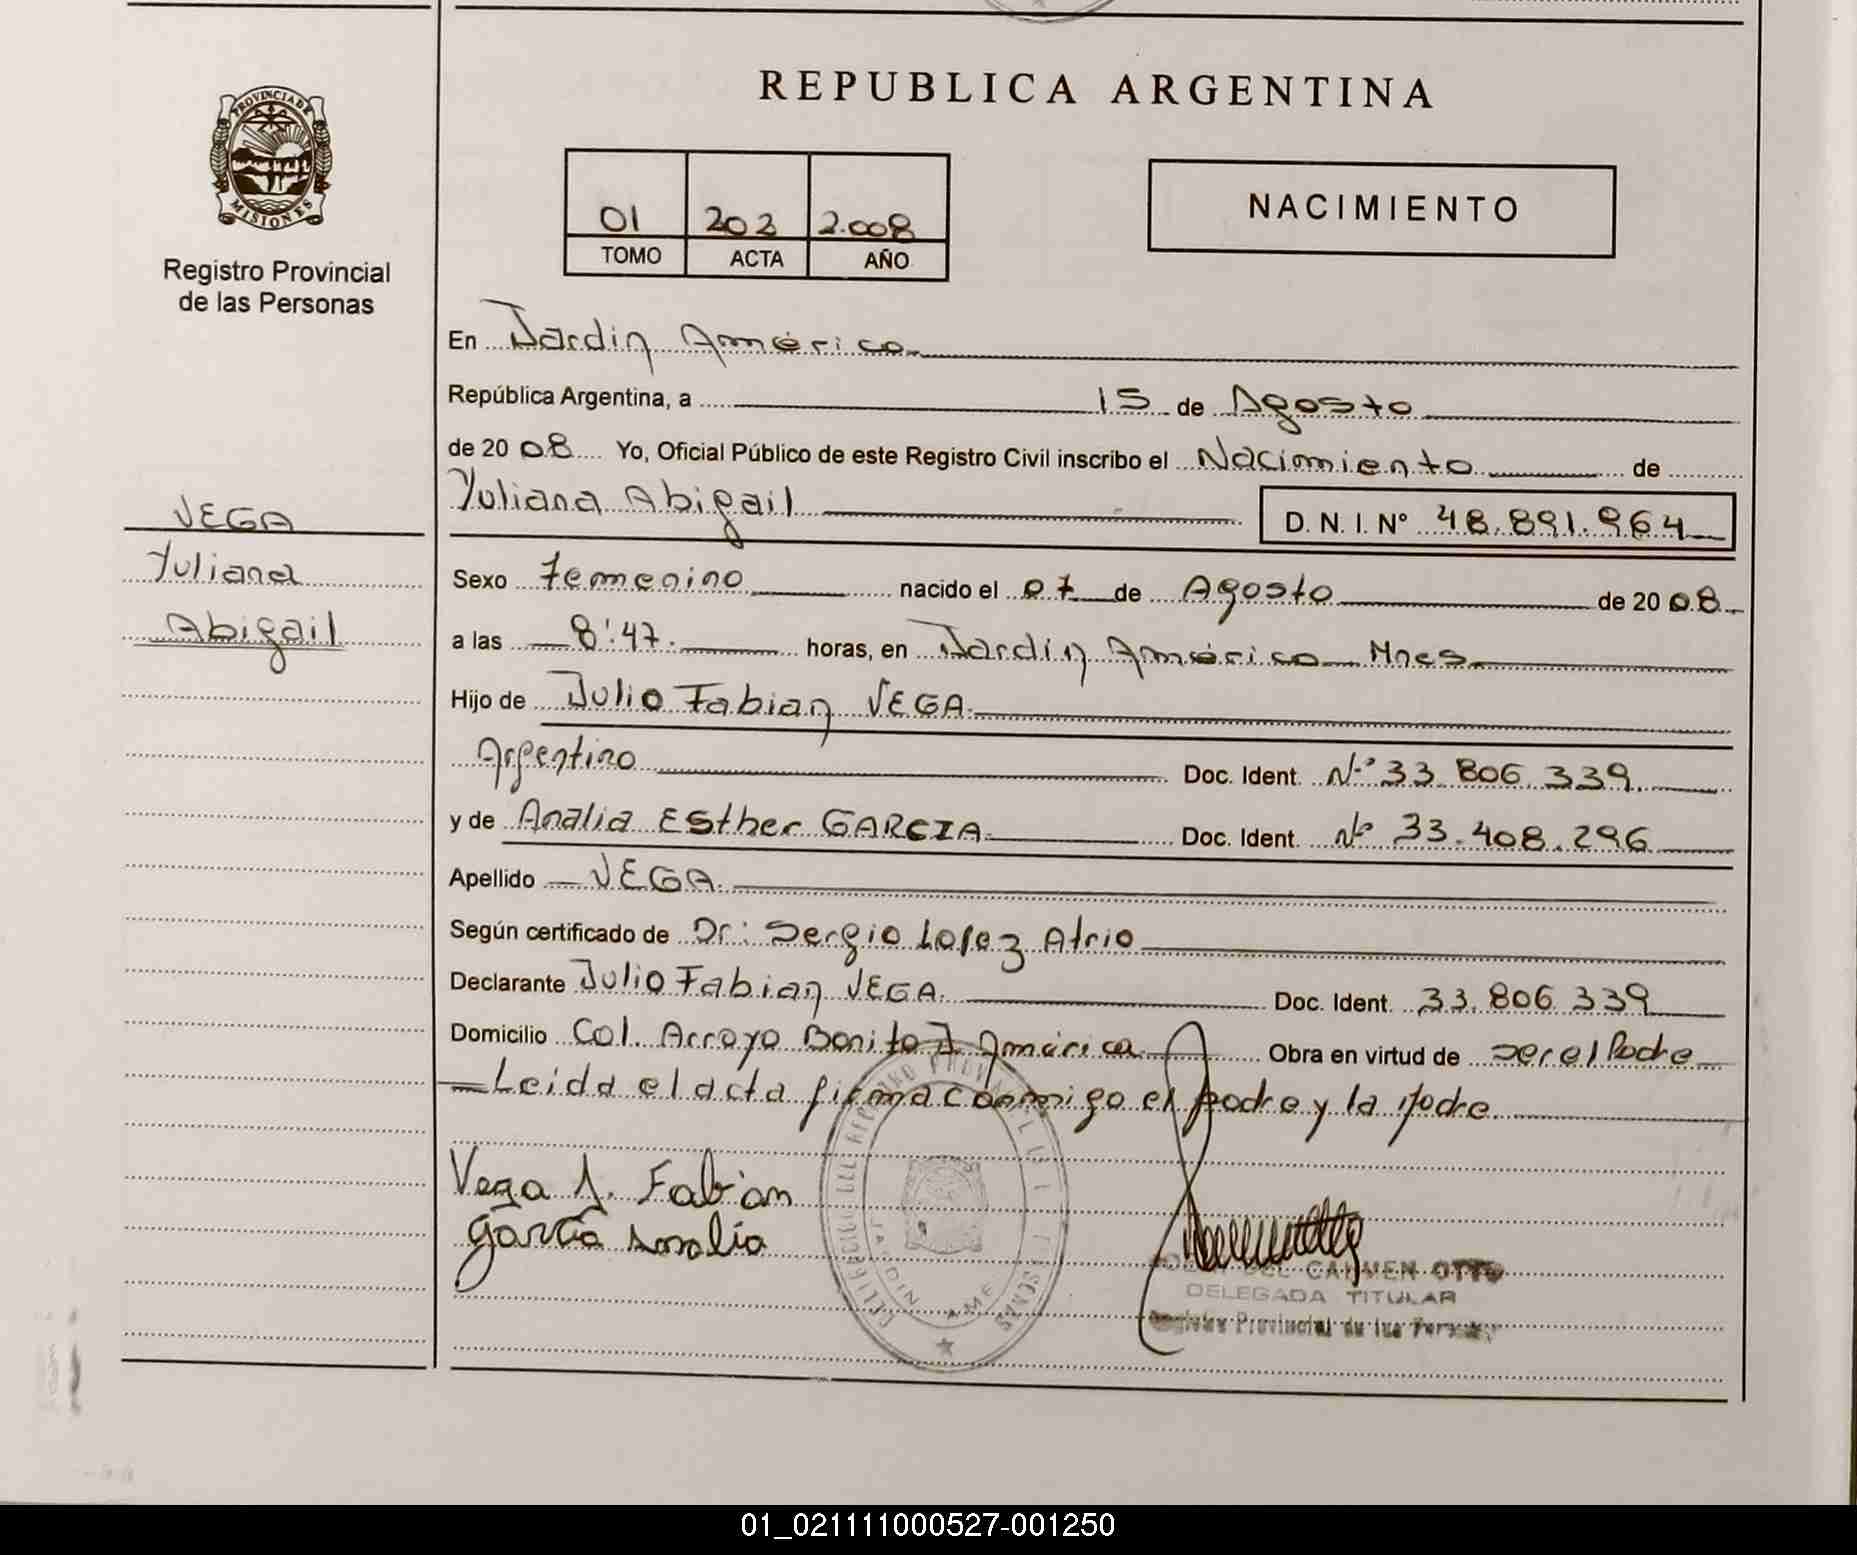 REPUBLICA ARGENTINA
PROVINCIA DE
MISIONES
Registro Provincial
de las Personas
01 202 2.008
TOMO ACTA AÑO
NACIMIENTO
En Jardin América
República Argentina, a 15 de Agosto
de 20 08 Yo, Oficial Público de este Registro Civil inscribo el Nacimiento de
Yuliana Abigail D. N. I. N° 48.891.964
VEGA
Yuliana
Abigail
Sexo Femenino nacido el 07 de Agosto de 20 08
a las 8:47. horas, en Jardin América Mnes
Hijo de Julio Fabian VEGA.
Argentino Doc. Ident. N° 33.806.339.
y de Analia Esther GARCIA Doc. Ident. N° 33.408.296
Apellido VEGA.
Según certificado de Dr: Sergio Lopez Atrio
Declarante Julio Fabian VEGA. Doc. Ident. 33.806.339
Domicilio Col. Arroyo Bonito J América Obra en virtud de ser el Padre
Leida el acta firma conmigo el padre y la Madre
Vega J. Fabian
García Analia
DEL CARMEN OTTO
DELEGADA TITULAR
Registro Provincial de las Personas
JARDIN AME
01_021111000527-001250